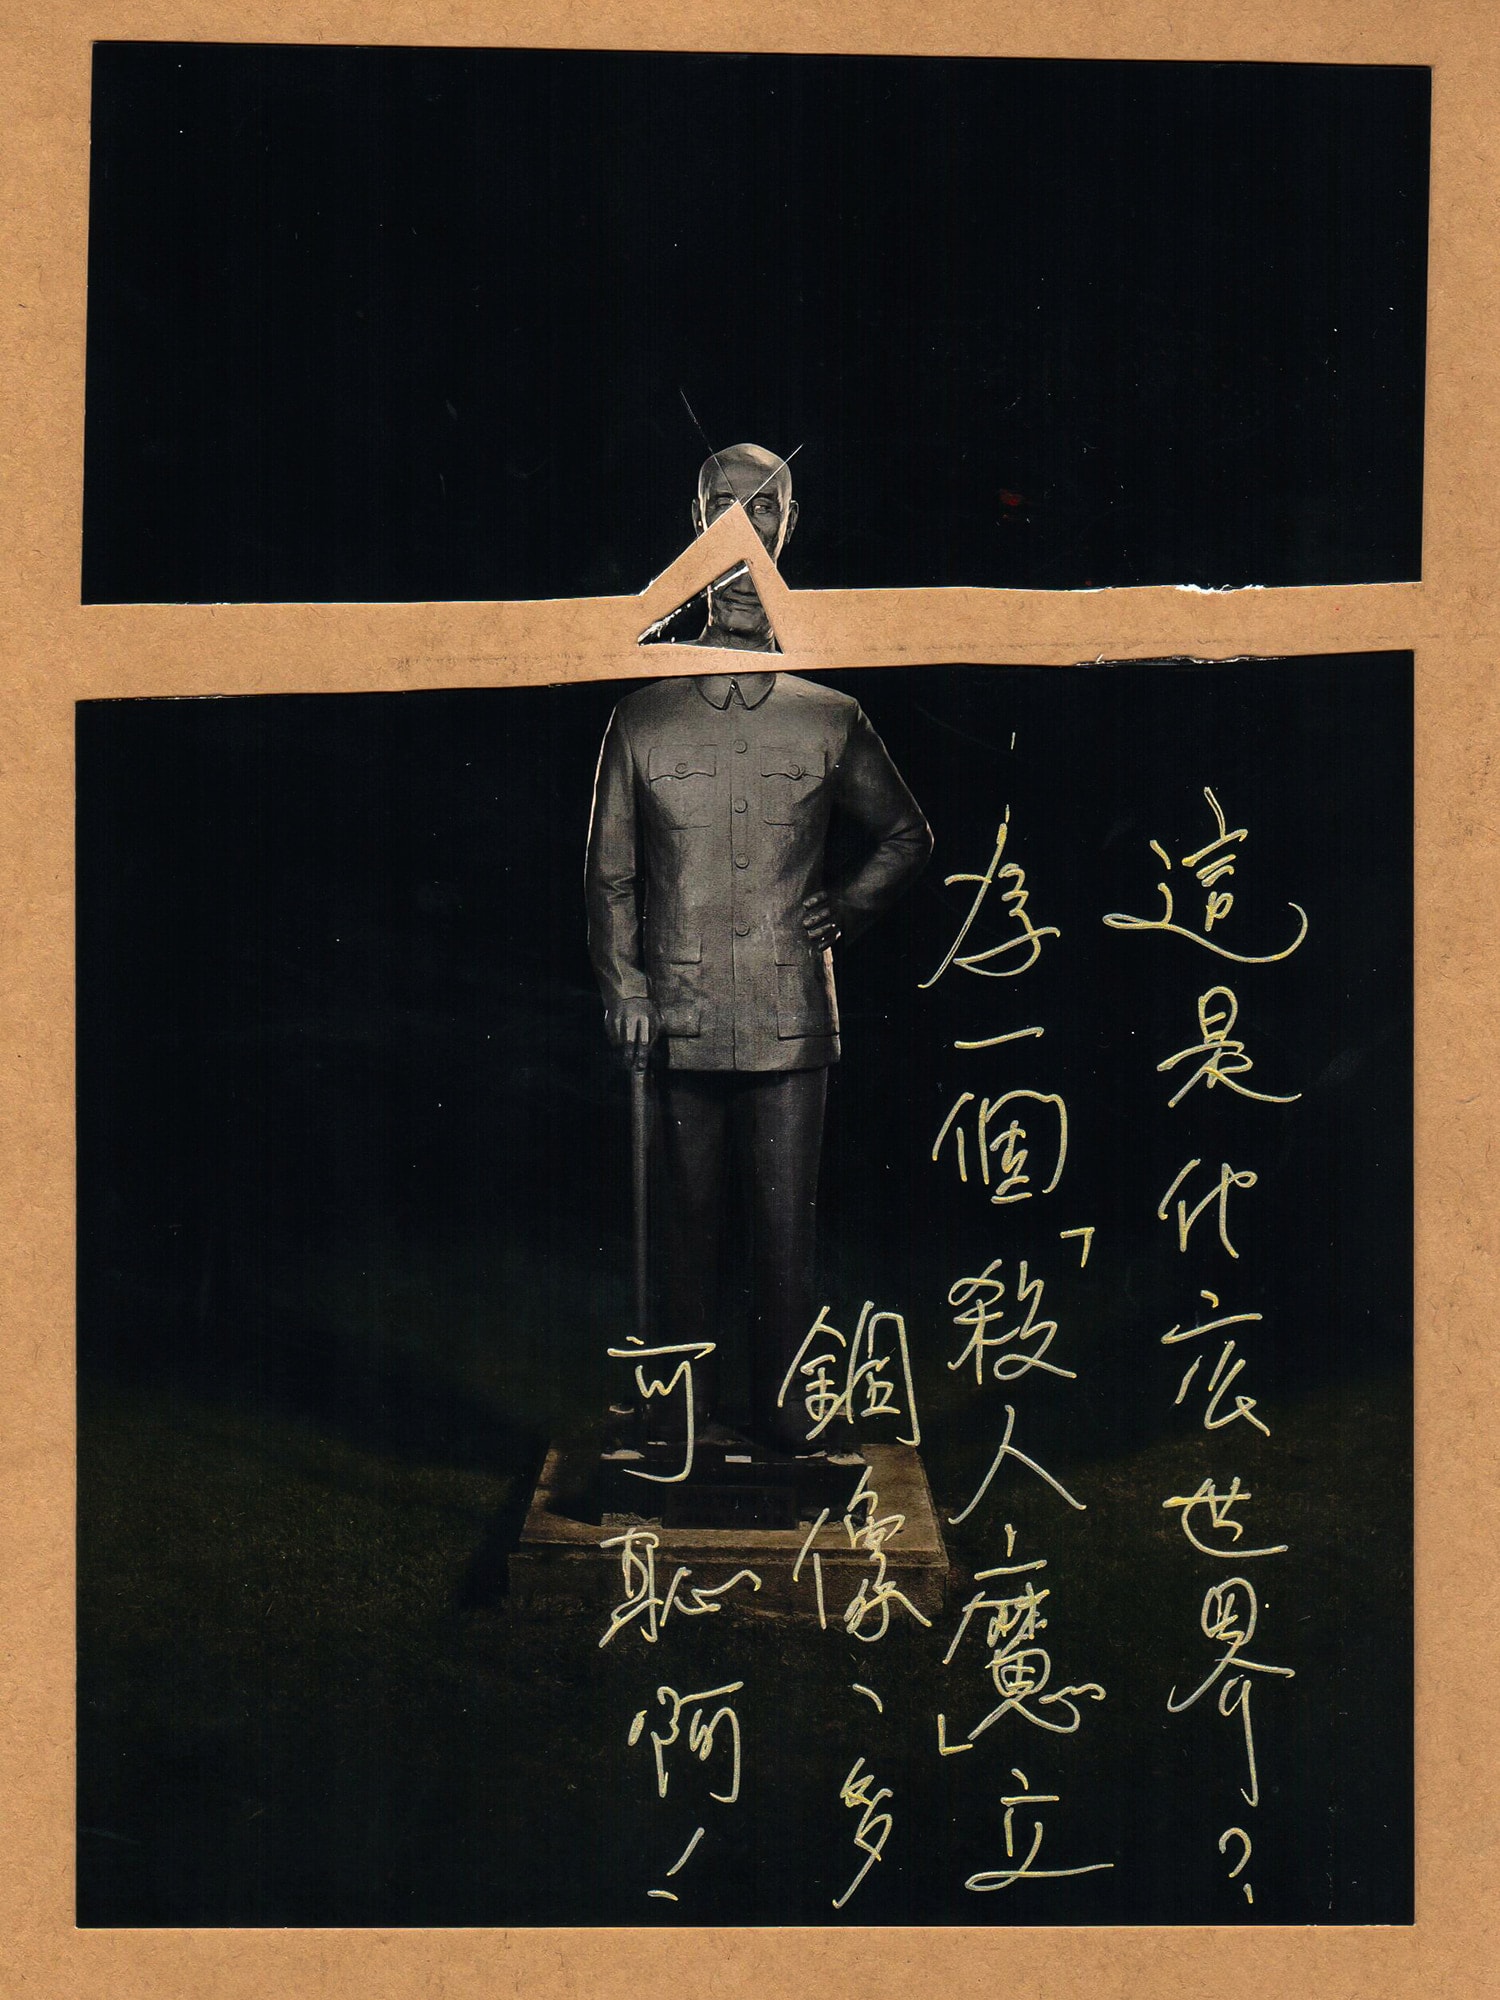 這是什麼世界?
為一個「殺人魔」立
銅像、多
可恥啊!